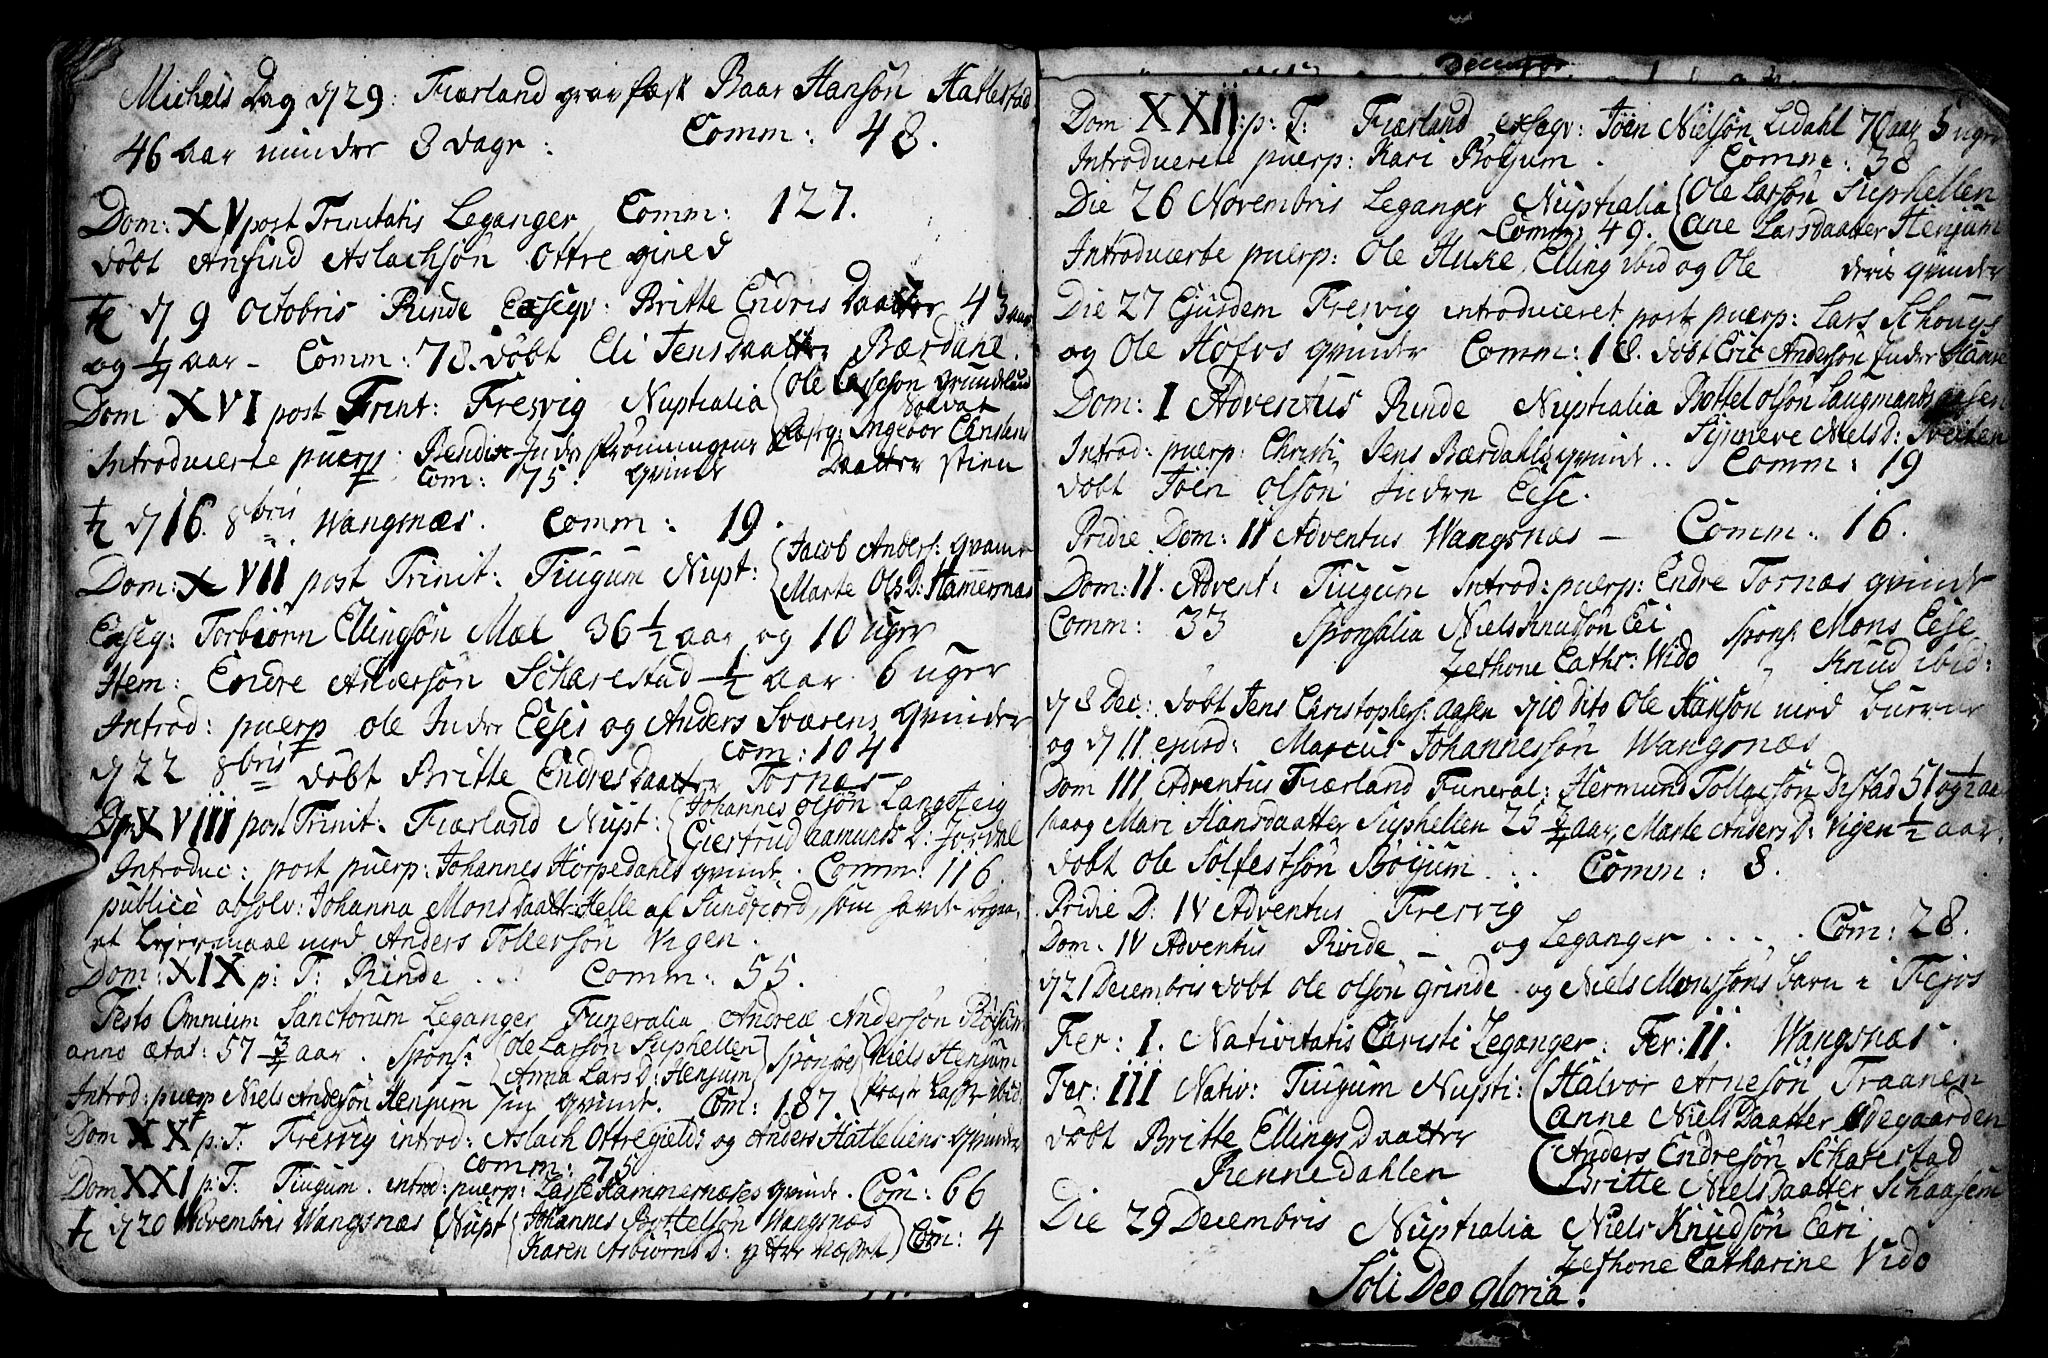 Michels Dag d 29: Fiærland grav fæst Baar Hansön Hatlestad
46 aar minder 8 dage: Comm: 48.
Dom: XV post Trinitatis Leganger Comm: 127.
döbt Anfind Aslachsön Ottregired
d 9 Octobris Rinde Exseqv: Britte Endris Daatter 43 aar
og ¼ aar - Comm: 78. döbt Eli Jensdaatter Bærdahl.
Dom XVI post Trint: Fresvig Nuptialia Ole Lassön Grundeland
Introducerte puerp: Bendix Indr Frönningens Exseqv: Ingebor Christens
Com: 75. qvinde Daatter Stien
d 16. 8bris Wangsnæs. Comm: 19.
Dom: XVII post Trinit: Tiugum Nupt: Jacob Anders: qvame
Marte Ols D: Hammersnæs
Exseq: Torbiörn Ellingsön Mæl 36 ½ aar og 10 uger
Item: Endre Andersön Scharestad ½ aar 6 uger
Introd: puerp Ole Indre Eeses og Anders Sværens qvinder
Com: 104
d 22 8bris döbt Britte Endresdaatter Tornæs
Dom XVIII post Trinit: Fiærland Nupt: Johannes Olsön Langsteig
Giertrud Aamunds D: Jordal
Introduc: post puerp: Johannes Horpedahls qvinde. Comm: 116.
publicè absolv: Johanna Monsdaatter Helle af Sundfiord, som hafde begaa-
et Leyermaal med Anders Tollefsön Vigen.
Dom: XIX p: T: Rinde ... Comm: 55.
Festo Omnium Sanctorum Leganger Funeralia Andreæ Andersön
anno ætat: 57 ¾ aar. Spons: Ole Larsön Suphellen Sponsores Niels Henjum
Anna Lars D: Henjum
Introd: puerp Niels Andersön Henjum sin qvinde. Com: 187.
Dom XX p: T: Fresvig introd: Aslach Ottregields og Anders Hatleliens qvinder
Comm: 75
Dom XXI p: T: Tiugum. introd: puerp: Lasse Hammersnæses qvinde. Com: 66
d 20 Novembris Wangsnæs Nupt Johannes Bottelsön Wangsnæs Com: 4
Karen Asbiörns D: ytter
Dom XXII: p: T: Fiærland exseqv: Joen Nielsön Lidahl 70 aar 5 uger
Introducerte puerp: Kari Boijum. Comm: 38
Die 26 Novembris Leganger Nuptialia Ole Larsön Suphellen
Comm: 49. Ane Larsdaatter Henjum
Introducerte puerp: Ole Huke, Elling ibid og Ole deris qvinder
Die 27 Ejusdem Fresvig introduceret post puerp: Lars Schougs
og Ole Hofvs qvinder Comm: 18. döbt Eric Andersön Indre
Dom: I Adventus Rinde Nuptialia Bottel Olsön Laugmandsaasen
Synneve Niels D: Tveiten
Introd: puerp: Christi Jens Bærdahls qvinde.. Comm: 19
döbt Joen Olsön Indre Eese.
Pridie Dom: II Adventus Wangsnæs - Comm: 16.
Dom: II. Advent: Tiugum Introd: puerp: Endre Tornæs qvinde
Comm: 33 Sponsalia Niels Knudsön Eei Spons: Mons Eese
Zethone Cathr: Wido " Knud ibid:
d 8 Dec: döbt Jens Christophers: Aasen d 10 dito Ole Hanson med
og d 11 ejusd: Marcus Johannessön Wangsnæs
Dom III Adventus Fiærland Funeral: Hermund Tollefsön Distad 51 og ½ aar
Mari Hansdaatter Suphellen 25 ¾ aar, Marte Anders D: Vigen ½ aar.
döbt Ole Sölfestsön Böijum ... Comm: 8.
Pridie D: IV Adventus Fresvig
Dom: IV Adventus Rinde - og Leganger .... Com: 28.
d 21 Decembris döbt Ole Olsön Grinde og Niels Monssöns barn i Fejos
Fer: I. Nativitatis Christi Leganger: Fer: II. Wangsnæs.
Fer: III Nativ: Tiugum Nupti: Halvor Arnesön Traanen
Anne Niels Daatter Ödegaarden
döbt Britte Ellings Daatter Anders Endresön Scharestad
Rennedahlen Britte Niels Daatter Schaasem
Die 29 Decembris Nuptialia Niels Knudsön Eeri
Zethone Catharine Vido
Soli Deo Gloria.